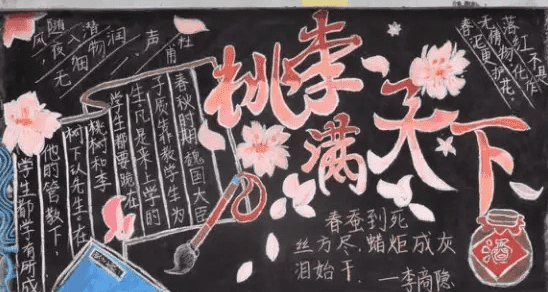 随风潜入夜
润物细无声
杜甫
桃李满天下
落红不是
无情物化作
春泥更护花。
春秋时期魏国大臣
子质靠教学生为
生凡是来上学的
学生都要跪在
桃树和李
树下认先生。在
他的管教下,
学生都学有所成
春蚕到死
丝方尽,蜡炬成灰
泪始干. —李商隐
酒